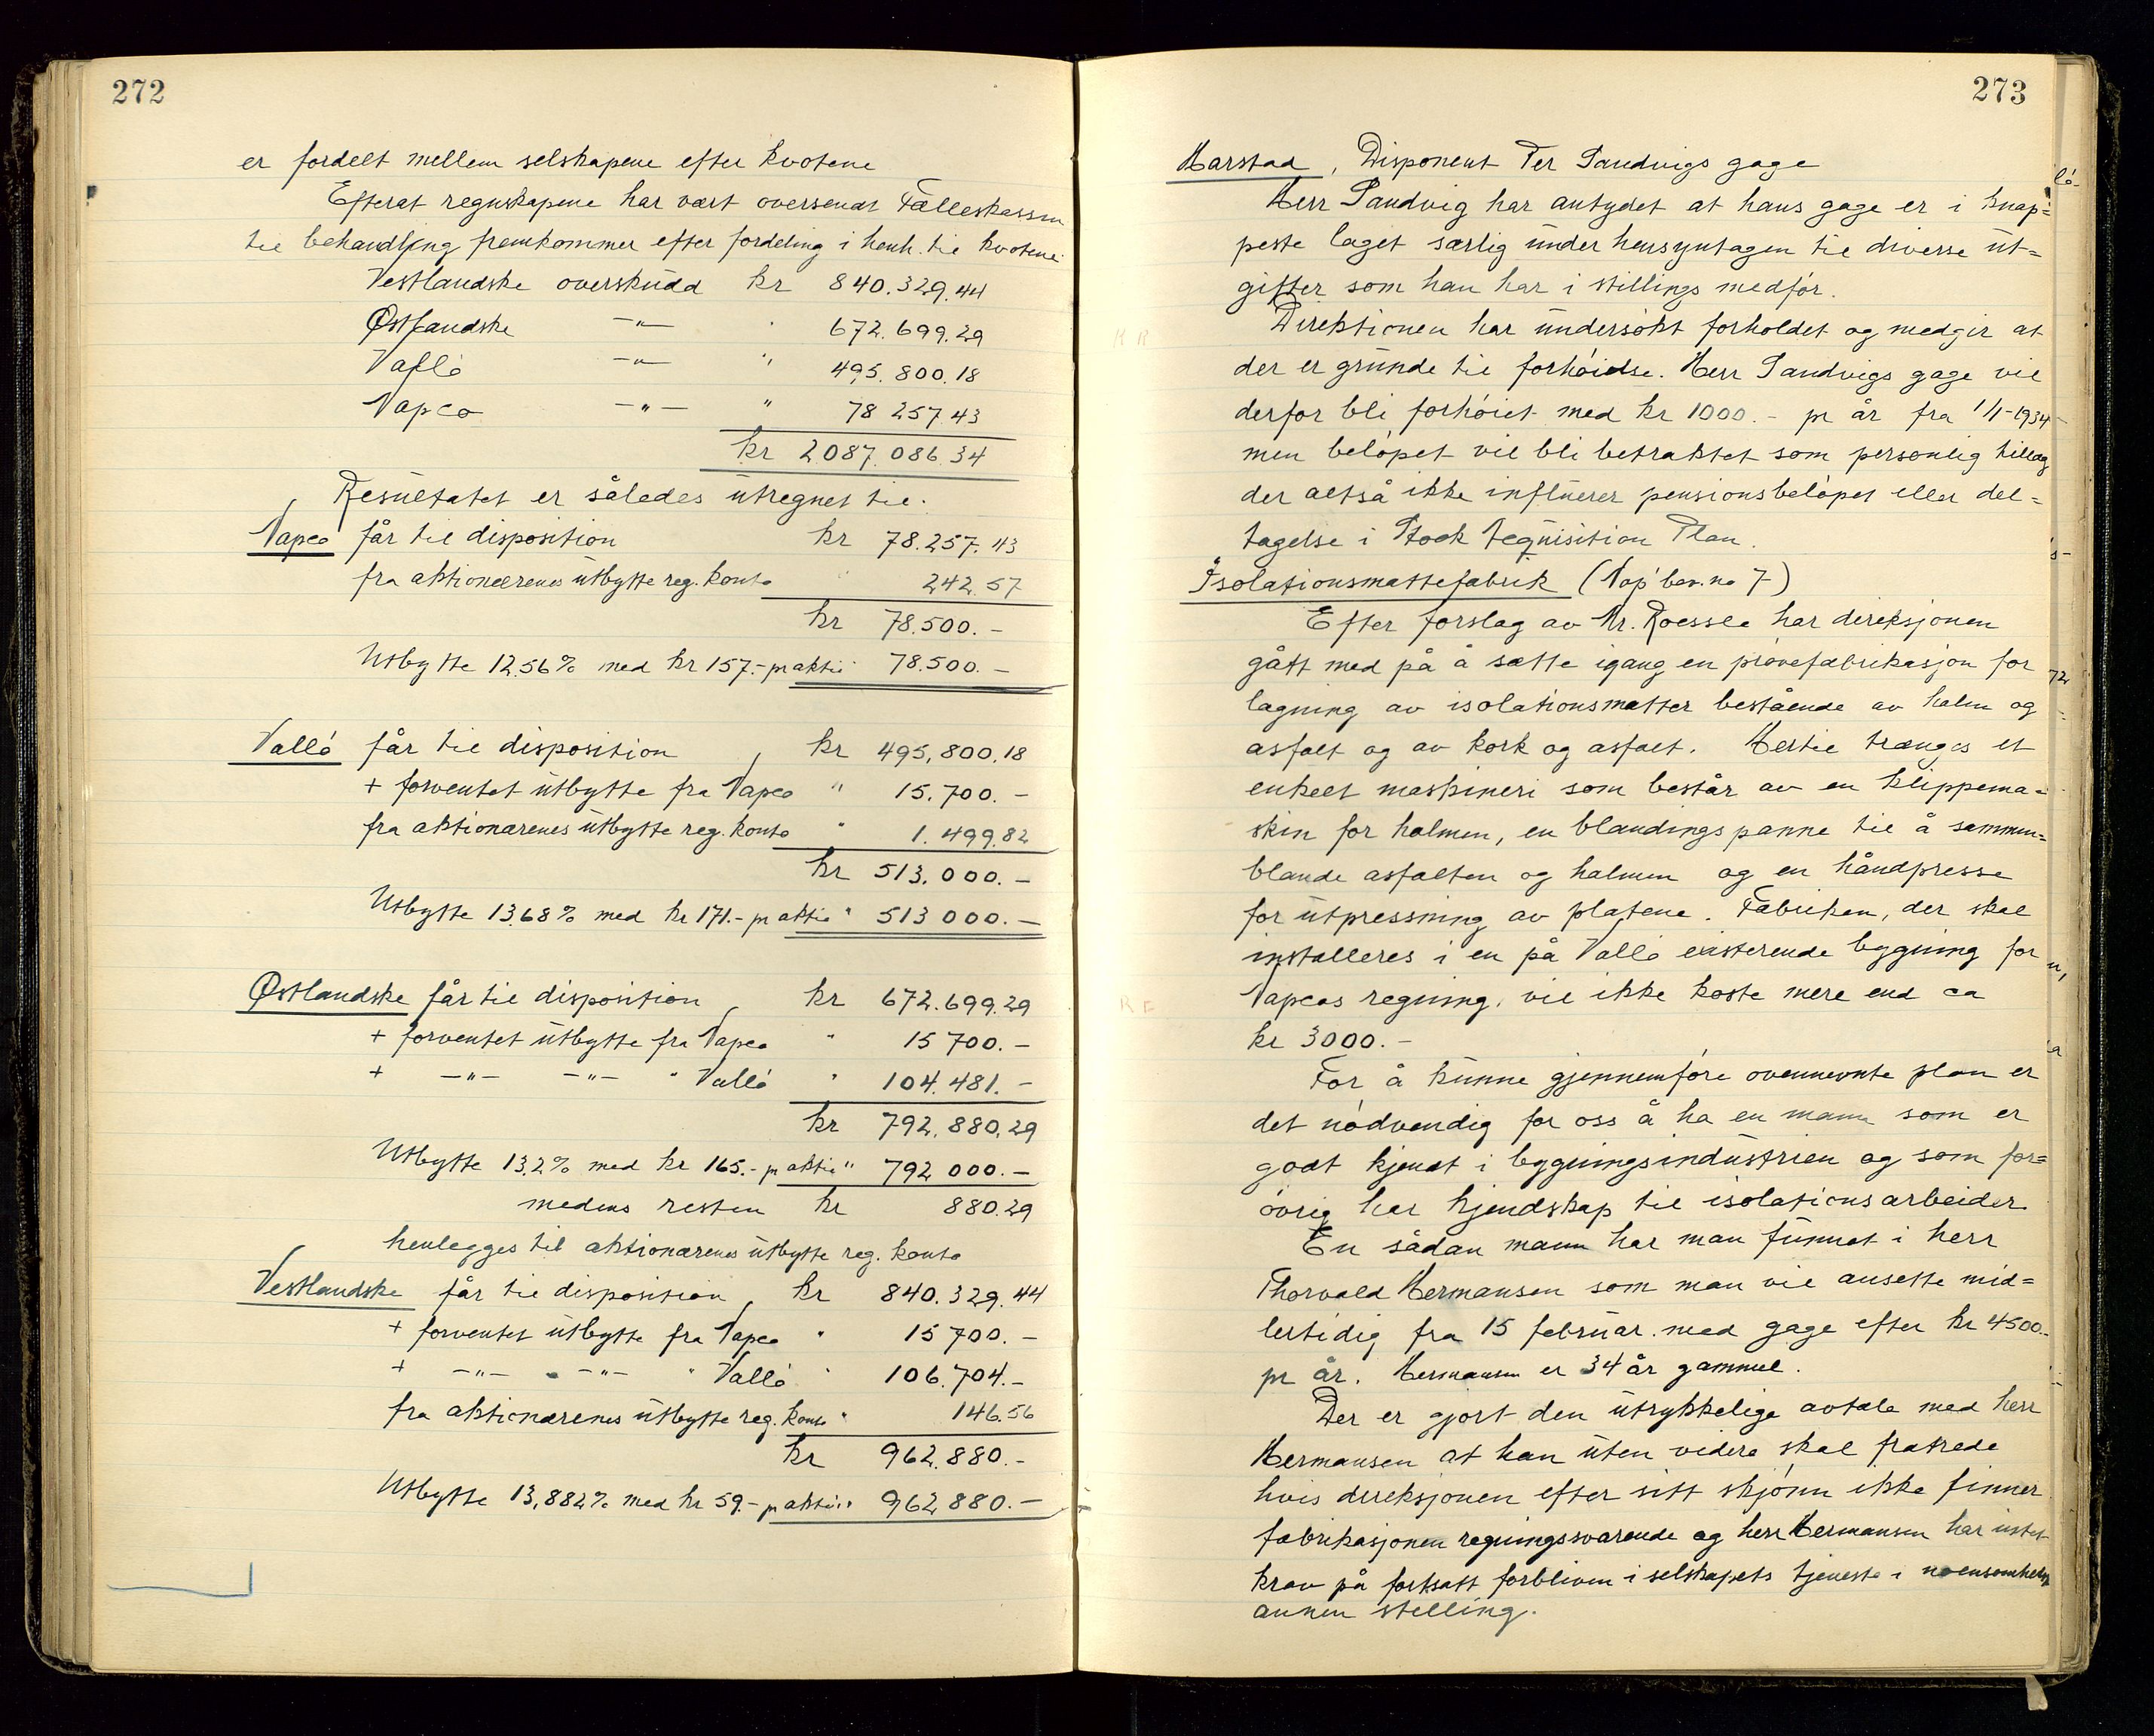 272
er fordelt mellem selskapene efter kvotene
Efterat regnskapene har vært oversendt Fælleskassen
til behandling fremkommer efter fordeling i henh. til kvotene
Vestlandske overskudd kr 840.329.44
Østlandske —"— " 672.699.29
Vallö —"— " 495.800.18
Vapco —"— " 78 257.43
kr 2087.086.34
Resultatet er således utregnet til:
Vapco får til disposition kr 78.257.43
fra aktionærenes utbytte reg. konto " 242.57
kr 78.500.—
Utbytte 12.56% med kr 157.- pr aktie 78.500.—
Vallö får til disposition kr 495,800.18
+ forventet utbytte fra Vapco " 15.700.—
fra aktionærenes utbytte reg. konto " 1.499.82
kr 513.000.—
Utbytte 13.68% med kr 171.- pr aktie " 513 000.—
Østlandske får til disposition kr 672.699.29
+ forventet utbytte fra Vapco " 15 700.—
+ —"— —"— " Vallö " 104.481.—
kr 792.880.29
Utbytte 13.2% med kr 165.- pr aktie " 792 000.—
medens resten kr 880.29
henlegges til aktionærenes utbytte reg. konto
Vestlandske får til disposition kr 840.329.44
+ forventet utbytte fra Vapco " 15 700.—
+ —"— " —"— " Vallö " 106.704.—
fra aktionærenes utbytte reg. konto " 146.56
kr 962.880.-
Utbytte 13,882% med kr 59.- pr aktie " 962 880.—
273
Harstad, Disponent Per Sandvigs gage
Herr Sandvig har antydet at hans gage er i knap=
peste laget særlig under hensyntagen til diverse ut=
gifter som han har i stillings medför.
Direktionen har undersökt forholdet og medgir at
der er grunde til forhöielse. Herr Sandvigs gage vil
derfor bli forhöiet med kr 1000.- pr år fra 1/1-1934
men belöpet vil bli betraktet som personlig tillæg
der altså ikke influerer pensionsbelöpet eller del=
tagelse i Stock Acquisition Plan.
Isolationsmattefabrik (Vap' bev. no 7)
Efter forslag av Mr. Roessle har direksjonen
gått med på å sætte igang en prøvefabrikasjon for
lagning av isolationsmatter bestående av halm og
asfalt og av kork og asfalt. Hertil trænges et
enkelt maskineri som består av en klippema=
skin for halmen, en blandingspanne til å sammen=
blande asfalten og halmen og en håndpresse
for utpressning av platene. Fabriken, der skal
installeres i en på Vallö existerende bygning for
Vapcos regning, vil ikke koste mere end ca
kr 3000.-
For å kunne gjennemföre ovennevnte plan er
det nödvendig for oss å ha en mann som er
godt kjendt i bygningsindustrien og som for=
övrig har kjendskap til isolationsarbeider.
En sådan mann har man funnet i herr
Thorvald Hermansen som man vil ansette mid=
lertidig fra 15 februar med gage efter kr 4500.-
pr år. Hermansen er 34 år gammel.
Der er gjort den utrykkelige avtale med herr
Hermansen at han uten videre skal fratrede
hvis direksjonen efter sitt skjönn ikke finner
fabrikasjonen regningssvarende og herr Hermansen har intet
krav på fortsatt forbliven i selskapets tjeneste i noensomhelst
annen stilling.